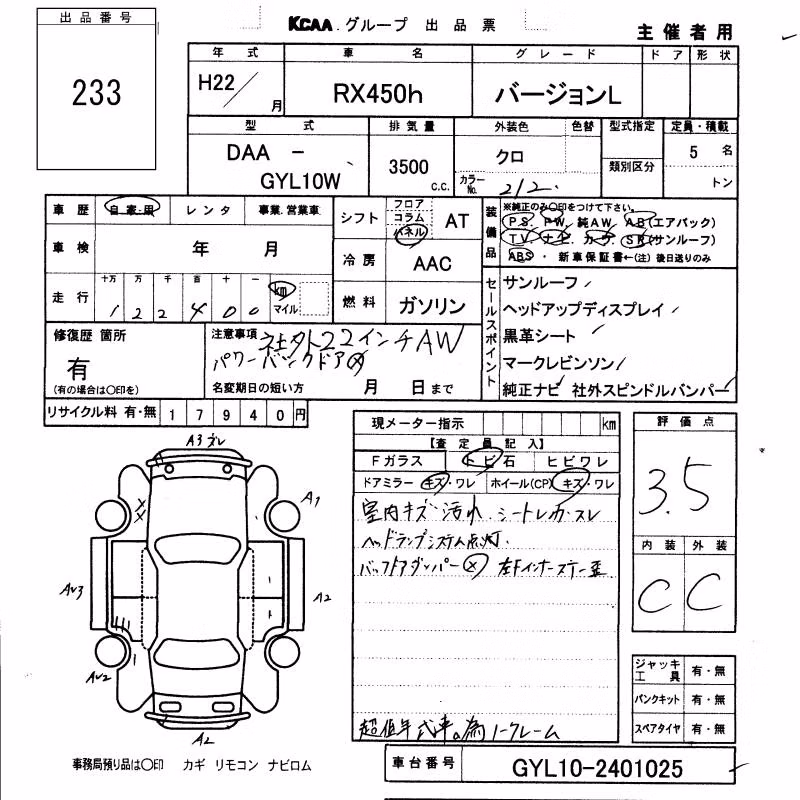 出品番号
233
KCAA グループ 出品票
主催者用
年式 車名 グレード ドア 形状
H22/ 月 RX450h バージョンL
型式 排気量 外装色 色替 型式指定 定員・積載
DAA － GYL10W 3500 C.C. クロ 類別区分 5 名
カラーNo. 212 トン
車歴 自家用 レンタ 事業.営業車
シフト フロア コラム パネル AT
装備品 ※純正のみ〇印をつけて下さい。
PS. PW. 純AW. AB(エアバック)
TV. ナビ. カワ. SR(サンルーフ)
ABS ・ 新車保証書←(注) 後日送りのみ
車検 年 月
冷房 AAC
走行 十万 万 千 百 十 一
1 2 2 4 0 0 km マイル
燃料 ガソリン
セールスポイント
サンルーフ
ヘッドアップディスプレイ
黒革シート
マークレビンソン
純正ナビ 社外スピンドルバンパー
修復歴 箇所
有
(有の場合は〇印を)
注意事項 社外22インチAW
パワーバックドア
名変期日の短い方 月 日まで
リサイクル料 有・無 1 7 9 4 0 円
現メーター指示 km
【査定員記入】
Fガラス トビ石 ヒビワレ
ドアミラー キズ・ワレ ホイール(CP) キズ・ワレ
室内キズ 汚れ シートレカスレ
ヘッドランプシステム点灯.
バックドアダンパー 左Fインナーステー歪
超低年式車の為ノークレーム
評価点
3.5
内装 外装
C C
A3ズレ
A1
AV3
A2
AV2
A2
ジャッキ工具 有・無
パンクキット 有・無
スペアタイヤ 有・無
事務局預り品は〇印 カギ リモコン ナビロム
車台番号 GYL10-2401025